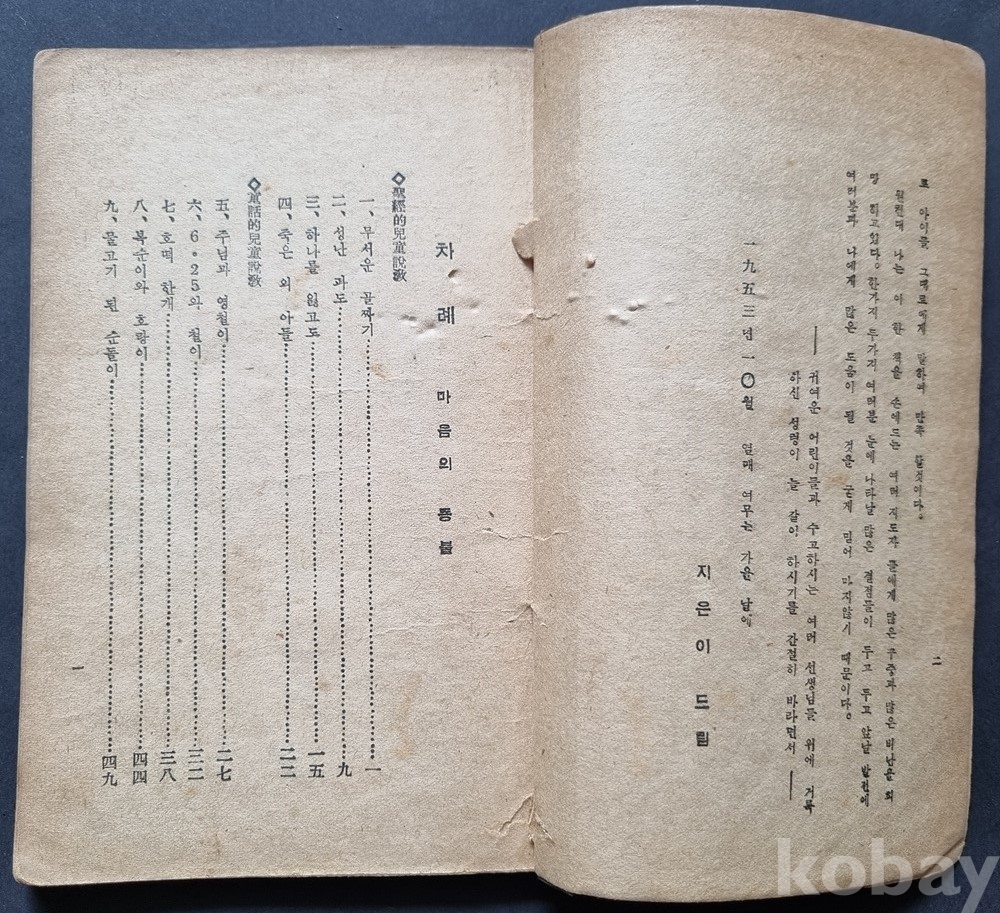 로 아이들 그대로에게 말하여 만족 할것이다。
원컨대 나는 이 한 책을 손에드는 여러 지도자 들에게 많은 주중과 많은 비난을 퍽
망 하고있다。한가지 두가지 여러분 눈에 나타날 많은 결점들이 두고 두고 앞날 발전에
여러분과 나에게 많은 도움이 될 것을 굳게 믿어 마지않기 때문이다。
귀여운 어린이들과 수고하시는 여러 선생님들 위에 거룩
하신 성령이 늘 같이 하시기를 간절히 바라면서——
一九五三년 一〇월 열매 여무는 가을 날에
지은이 드림
二
차례 마음의 등불
◇聖經的兒童說敎
一、무서운 꼴짜기……一
二、성난 파도……九
三、하나를 잃고도……一五
四、죽은 외 아들……二二
◇童話的兒童說敎
五、주님과 영철이……二七
六、6·25와 철이……三二
七、호떡 한개……三八
八、복순이와 호랑이……四四
九、물고기 된 순돌이……四九
一
kobay